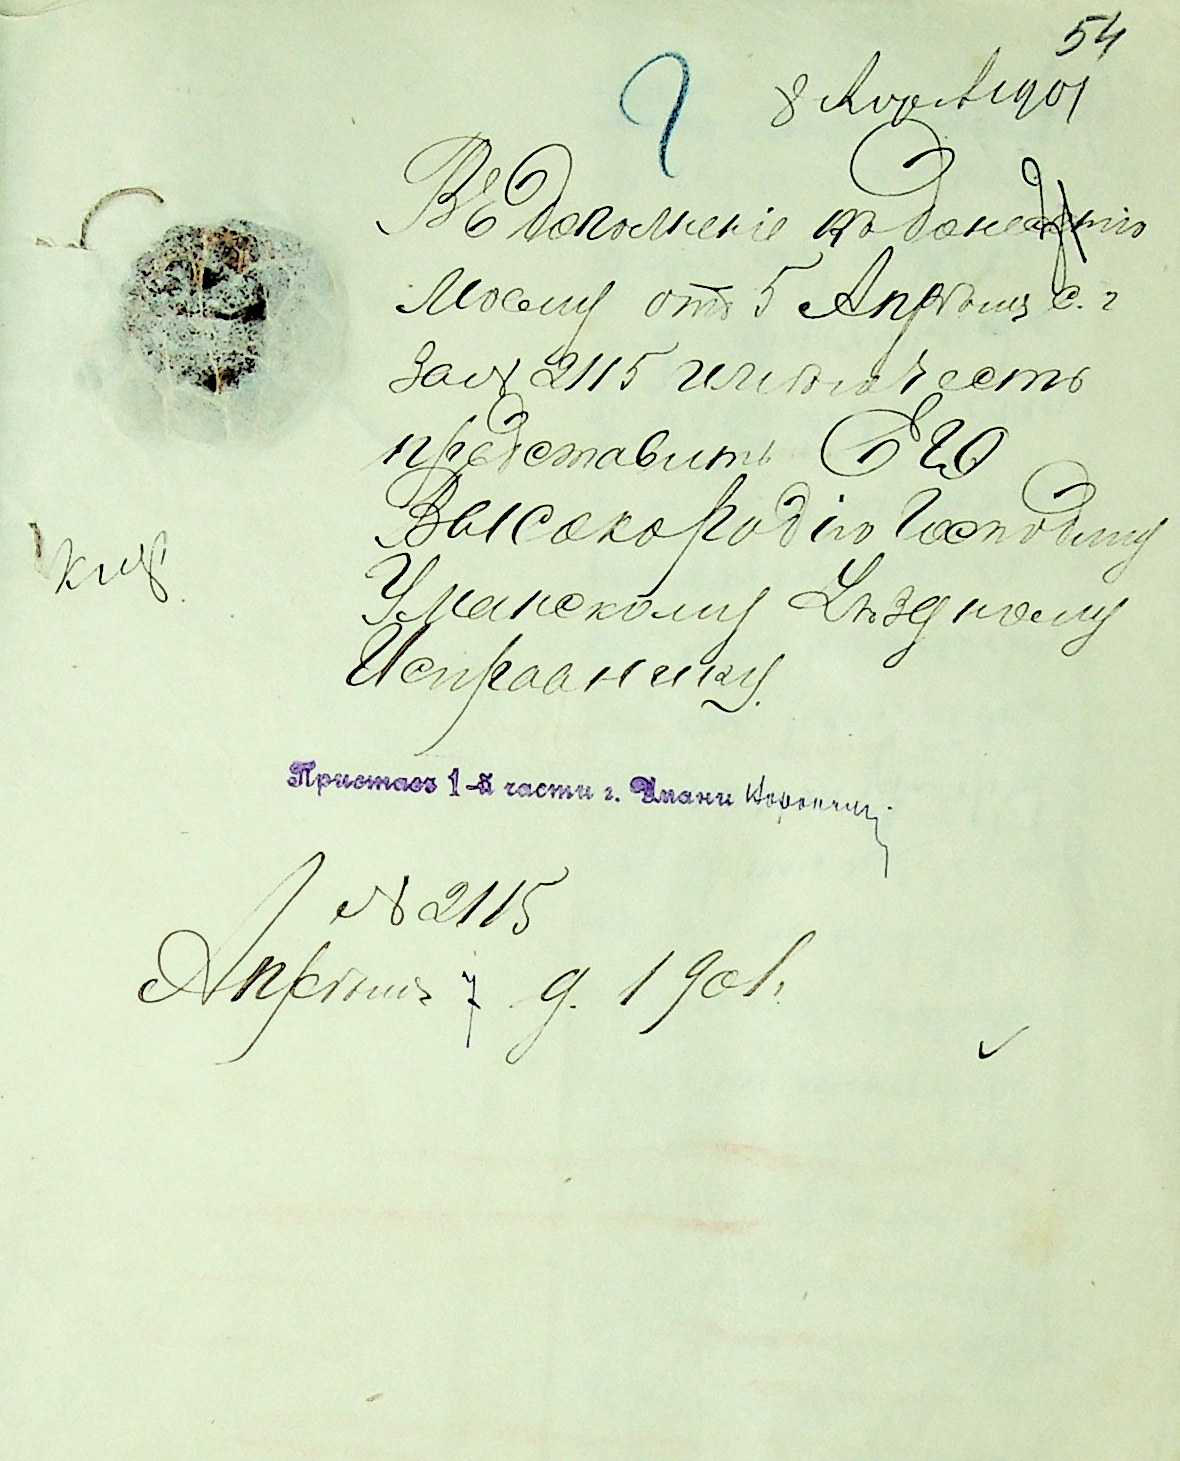 54
8 Апр 1901
Въ дополненіе къ донесенію
моему отъ 5 Апрѣля с. г
за № 2115 имѣю честь
представить ЕГО
Высокородію Господину
Уманскому Уѣздному
Исправнику.
Приставъ 1-й части г. Умани
№ 2115
Апрѣля 7 д. 1901.